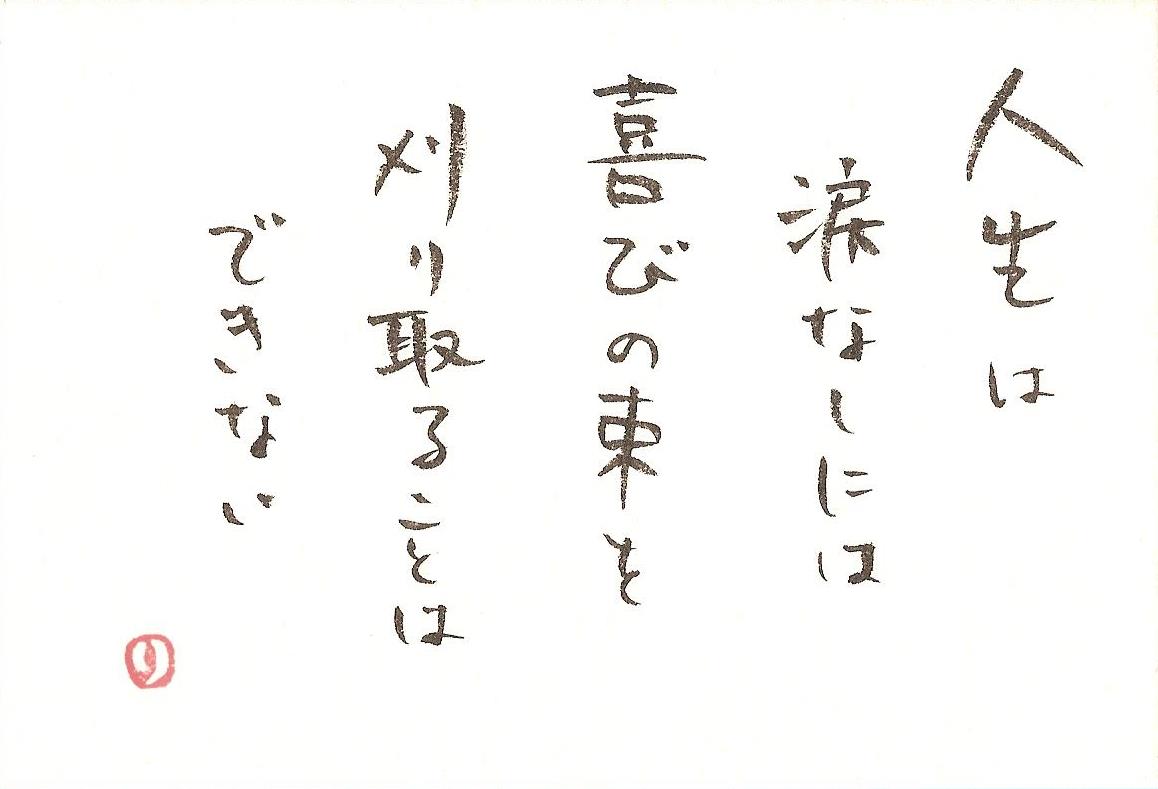 人生は
涙なしには
喜びの束を
刈り取ることは
できない